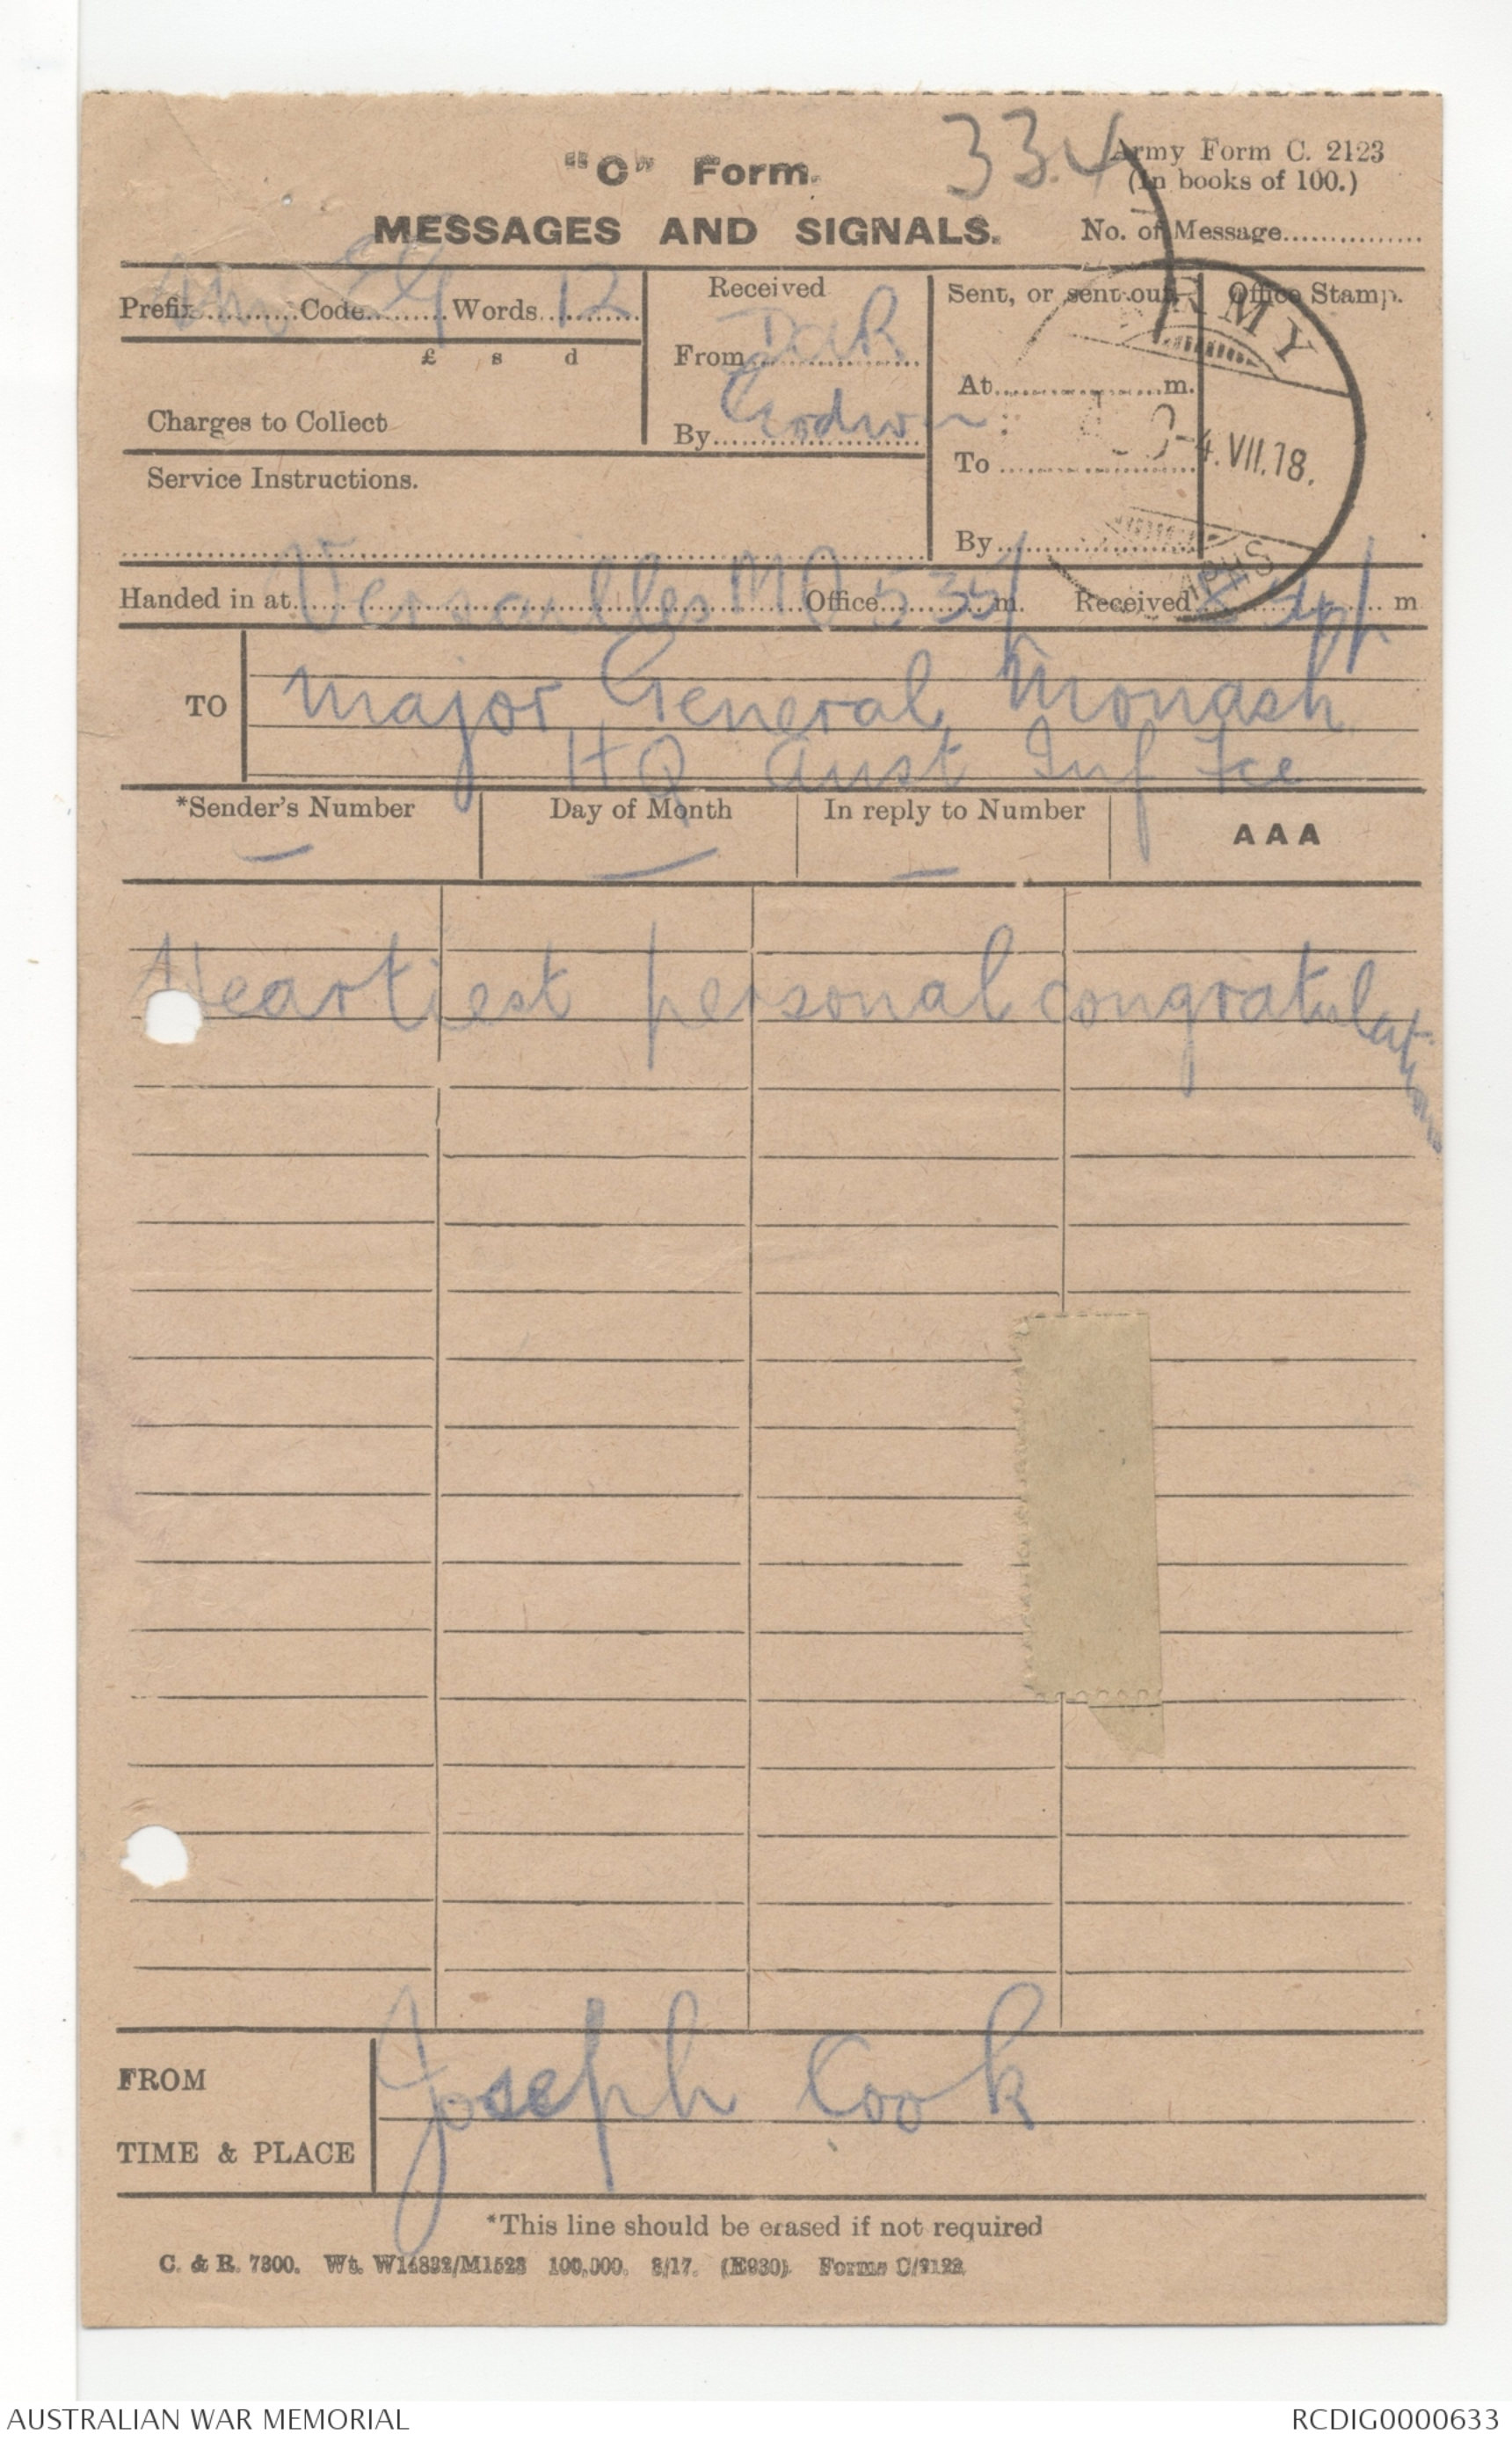 33.4
"C" Form.
Army Form C. 2123
(In books of 100.)
MESSAGES AND SIGNALS.
No. of Message...............
Prefix..........Code.........Words 12
£ s d
Charges to Collect
Service Instructions.
Received
From DaR
By Godwin
Sent, or sent out
At..................m.
To
By
Office Stamp.
ARMY
4.VII.18.
Handed in at Versailles MO Office 535 p m. Received m
TO Major General Monash
HQ Aust Inf Fce
*Sender's Number
Day of Month
In reply to Number
AAA
—
—
—
Heartiest personal congratulations
FROM Joseph Cook
TIME & PLACE
*This line should be erased if not required
C. & R. 7300. Wt. W14832/M1523 100,000. 8/17. (E930) Forms C/2123
AUSTRALIAN WAR MEMORIAL
RCDIG0000633